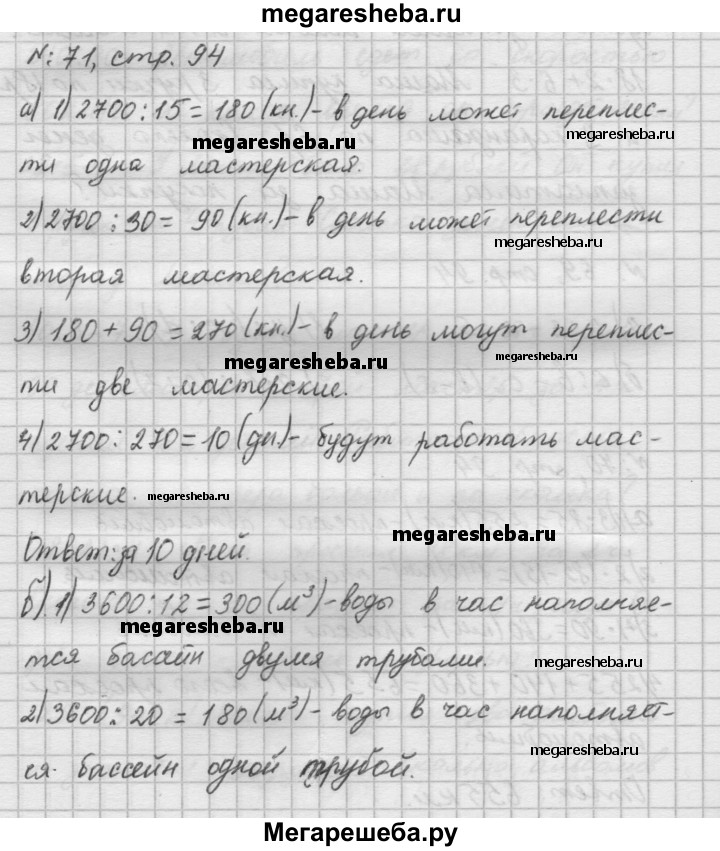 megaresheba.ru
№ 71, стр. 94
а) 1) 2700 : 15 = 180 (кн.) - в день может переплес-
megaresheba.ru
megaresheba.ru
ти одна мастерская.
2) 2700 : 30 = 90 (кн.) - в день может переплести
megaresheba.ru
вторая мастерская.
3) 180 + 90 = 270 (кн.) - в день могут переплес-
megaresheba.ru
megaresheba.ru
ти две мастерские.
4) 2700 : 270 = 10 (дн) - будут работать мас-
терские.
megaresheba.ru
megaresheba.ru
Ответ: за 10 дней.
б) 1) 3600 : 12 = 300 (м³) - воды в час наполняе-
megaresheba.ru
тся басайн двумя трубами.
megaresheba.ru
2) 3600 : 20 = 180 (м³) - воды в час наполняет-
megaresheba.ru
ся бассейн одной трубой.
Мегарешеба.ру